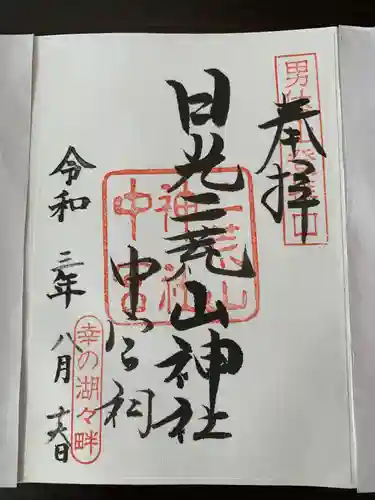 奉拝
男体山登拝
日光二荒山神社
二荒山
神社
中宮
中宮祠
幸の湖々畔
令和三年八月六日